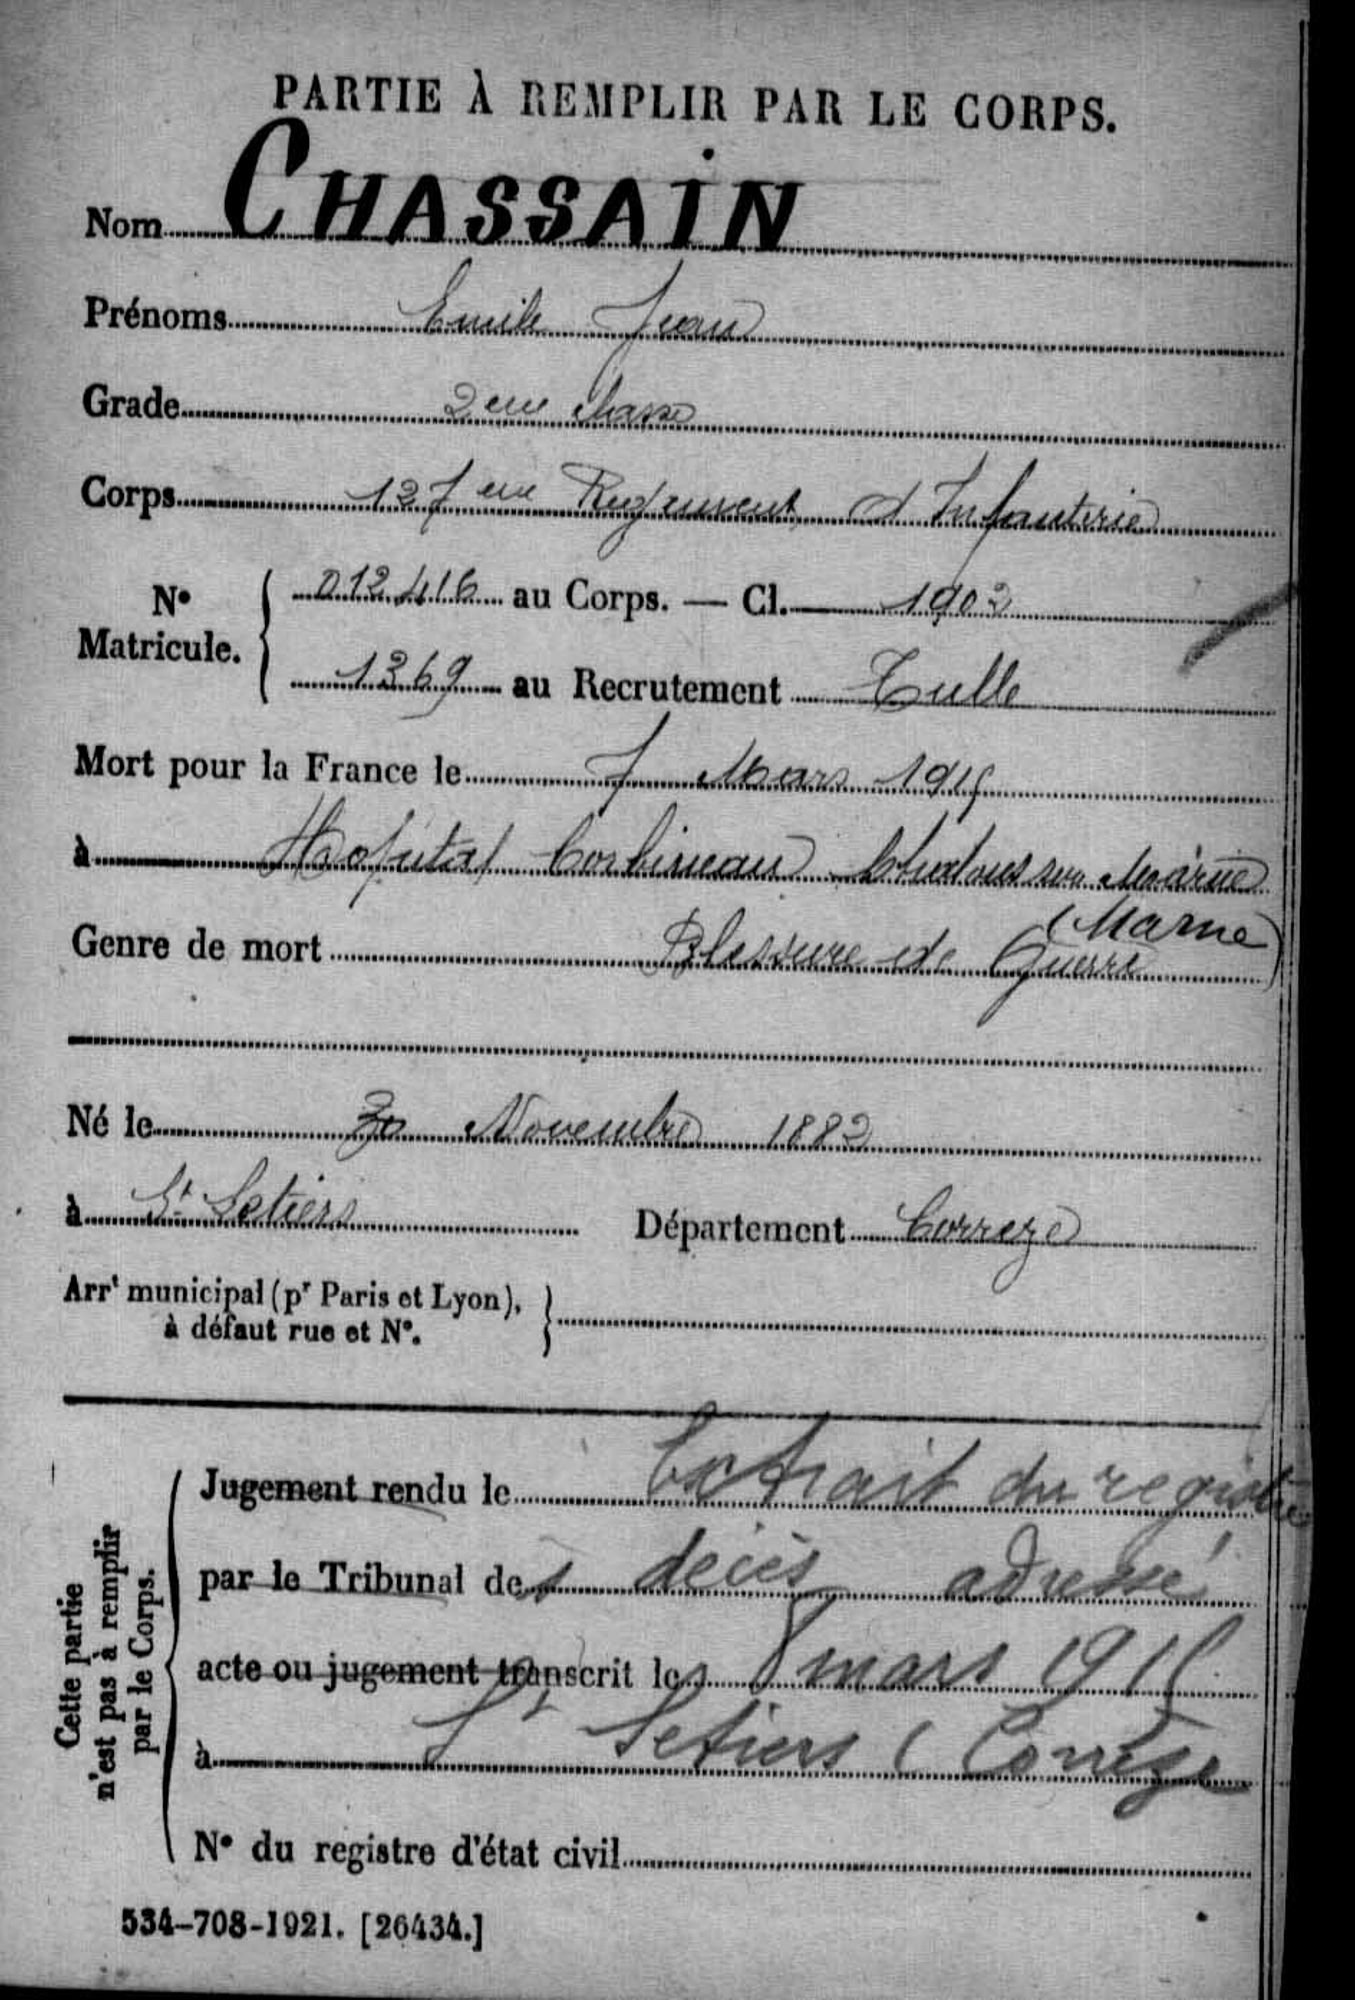 PARTIE À REMPLIR PAR LE CORPS.
Nom CHASSAIN
Prénoms Emile Jean
Grade 2eme classe
Corps 127eme Regiment d'Infanterie
N° Matricule. 012416 au Corps. — Cl. 1902
1369 au Recrutement Tulle
Mort pour la France le 7 Mars 1915
à Hopital Corbineau Chalons sur Marne
(Marne)
Genre de mort Blessure de Guerre
Né le 30 Novembre 1882
à St Setiers Département Correze
Arrt municipal (pr Paris et Lyon),
à défaut rue et N°.
Cette partie
n'est pas à remplir
par le Corps.
Jugement rendu le Extrait du registre
par le Tribunal des décès adressé
acte ou jugement transcrit le mars 1915
à St Setiers (Corrèze
N° du registre d'état civil
534-708-1921. [26434.]